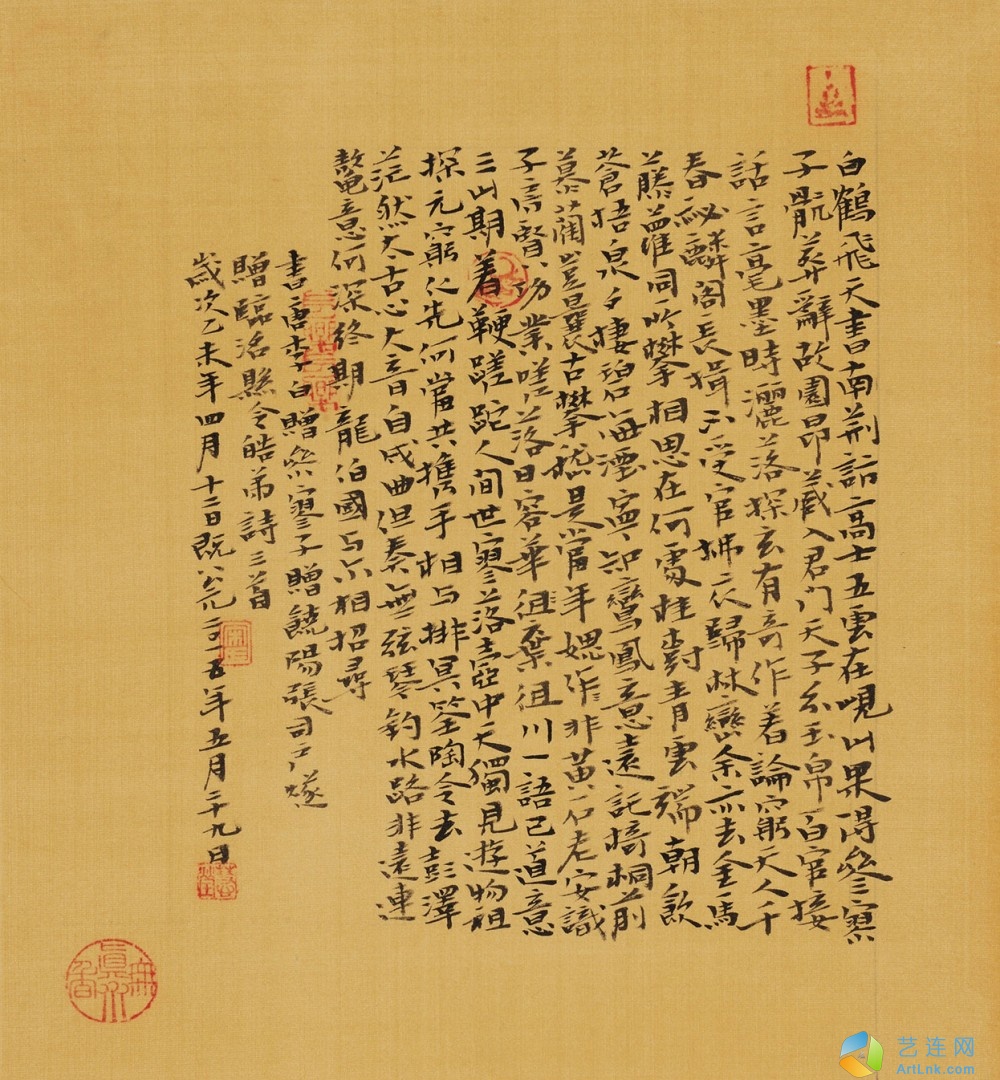 白鶴飛天書南荊訪高士五雲在峴山果得參寥
子骯葬辭故園昂藏入君門天子分玉帛百官接
話言毫墨時灑落探玄有奇作着論窮天人千
春祕麟閣長揖不受官拂衣歸林巒余亦去金馬
藤蘿同所攀相思在何處桂樹青雲端朝飲
蒼梧泉夕棲碧海煙寧知鸞鳳意遠託椅桐前
慕藺豈曩古攀嵇是當年媿作非黃石老安識
子房賢功業嗟落日容華徂棄徂川一語已道意
三山期着鞭蹉跎人間世寥落壺中天獨見遊物祖
探元窮化先何當共攜手相与排冥筌陶令去彭澤
茫然太古心大音自成曲但奏無弦琴釣水路非遠連
鼇意何深終期龍伯國与尔相招尋
書唐李白贈參寥子贈饒陽張司戶燧
贈臨洺縣令皓弟詩三首
歲次乙未年四月十二日既公元二〇一五年五月二十九日
艺连网
ArtLnk.com